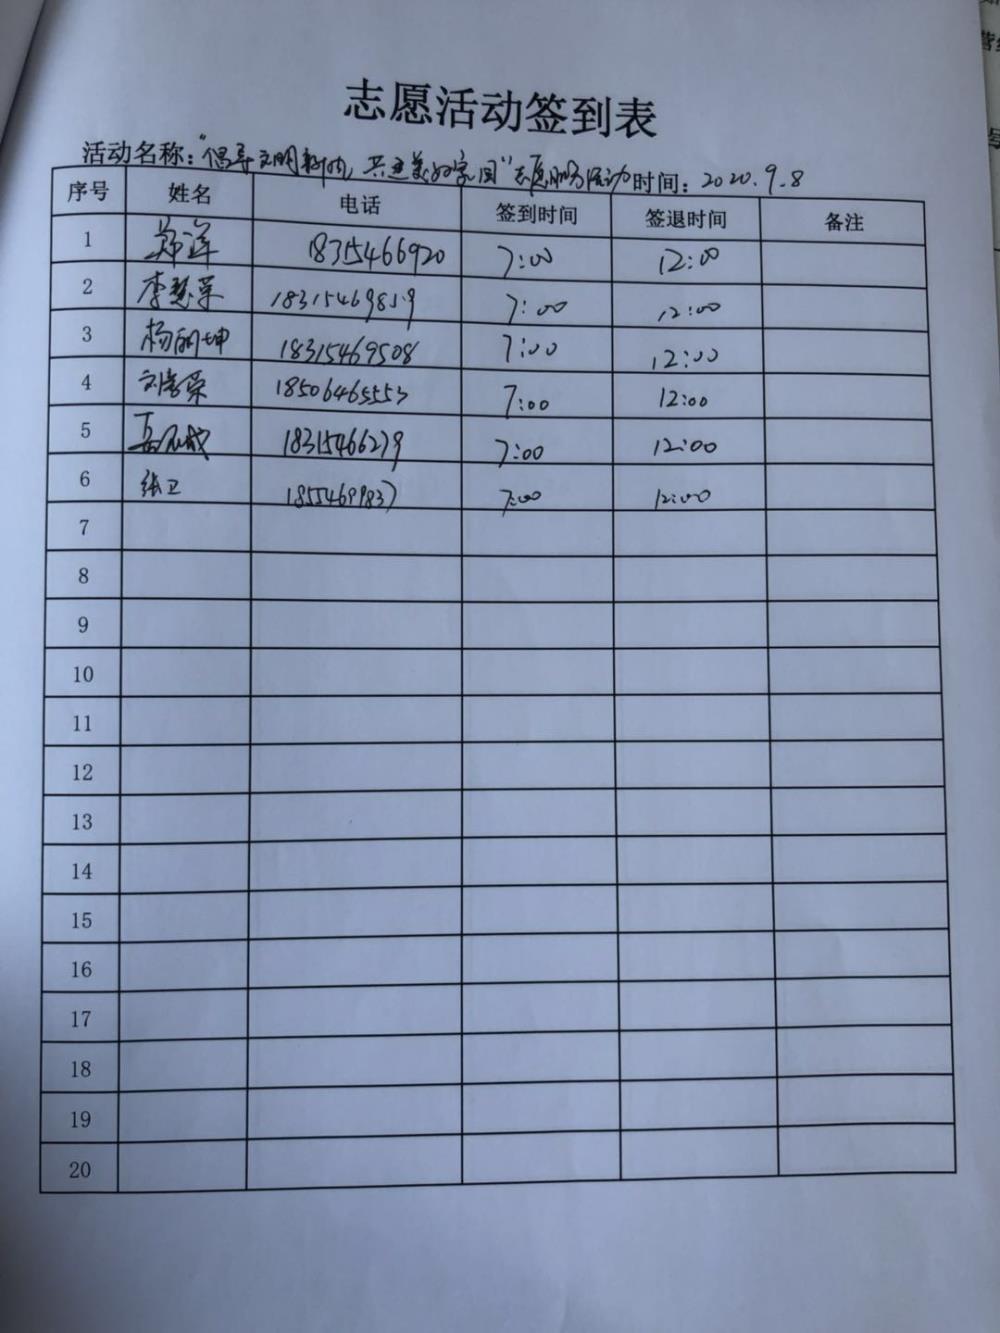 志愿活动签到表
活动名称："倡导文明新风，共建美好家园"志愿服务活动 时间：2020.9.8
序号 姓名 电话 签到时间 签退时间 备注
1 郑莲 18315466920 7:00 12:00
2 李慧荣 18315469819 7:00 12:00
3 杨 坤 18315469508 7:00 12:00
4 刘 荣 18506465553 7:00 12:00
5 18315466279 7:00 12:00
6 张卫 18554699837 7:00 12:00
7
8
9
10
11
12
13
14
15
16
17
18
19
20